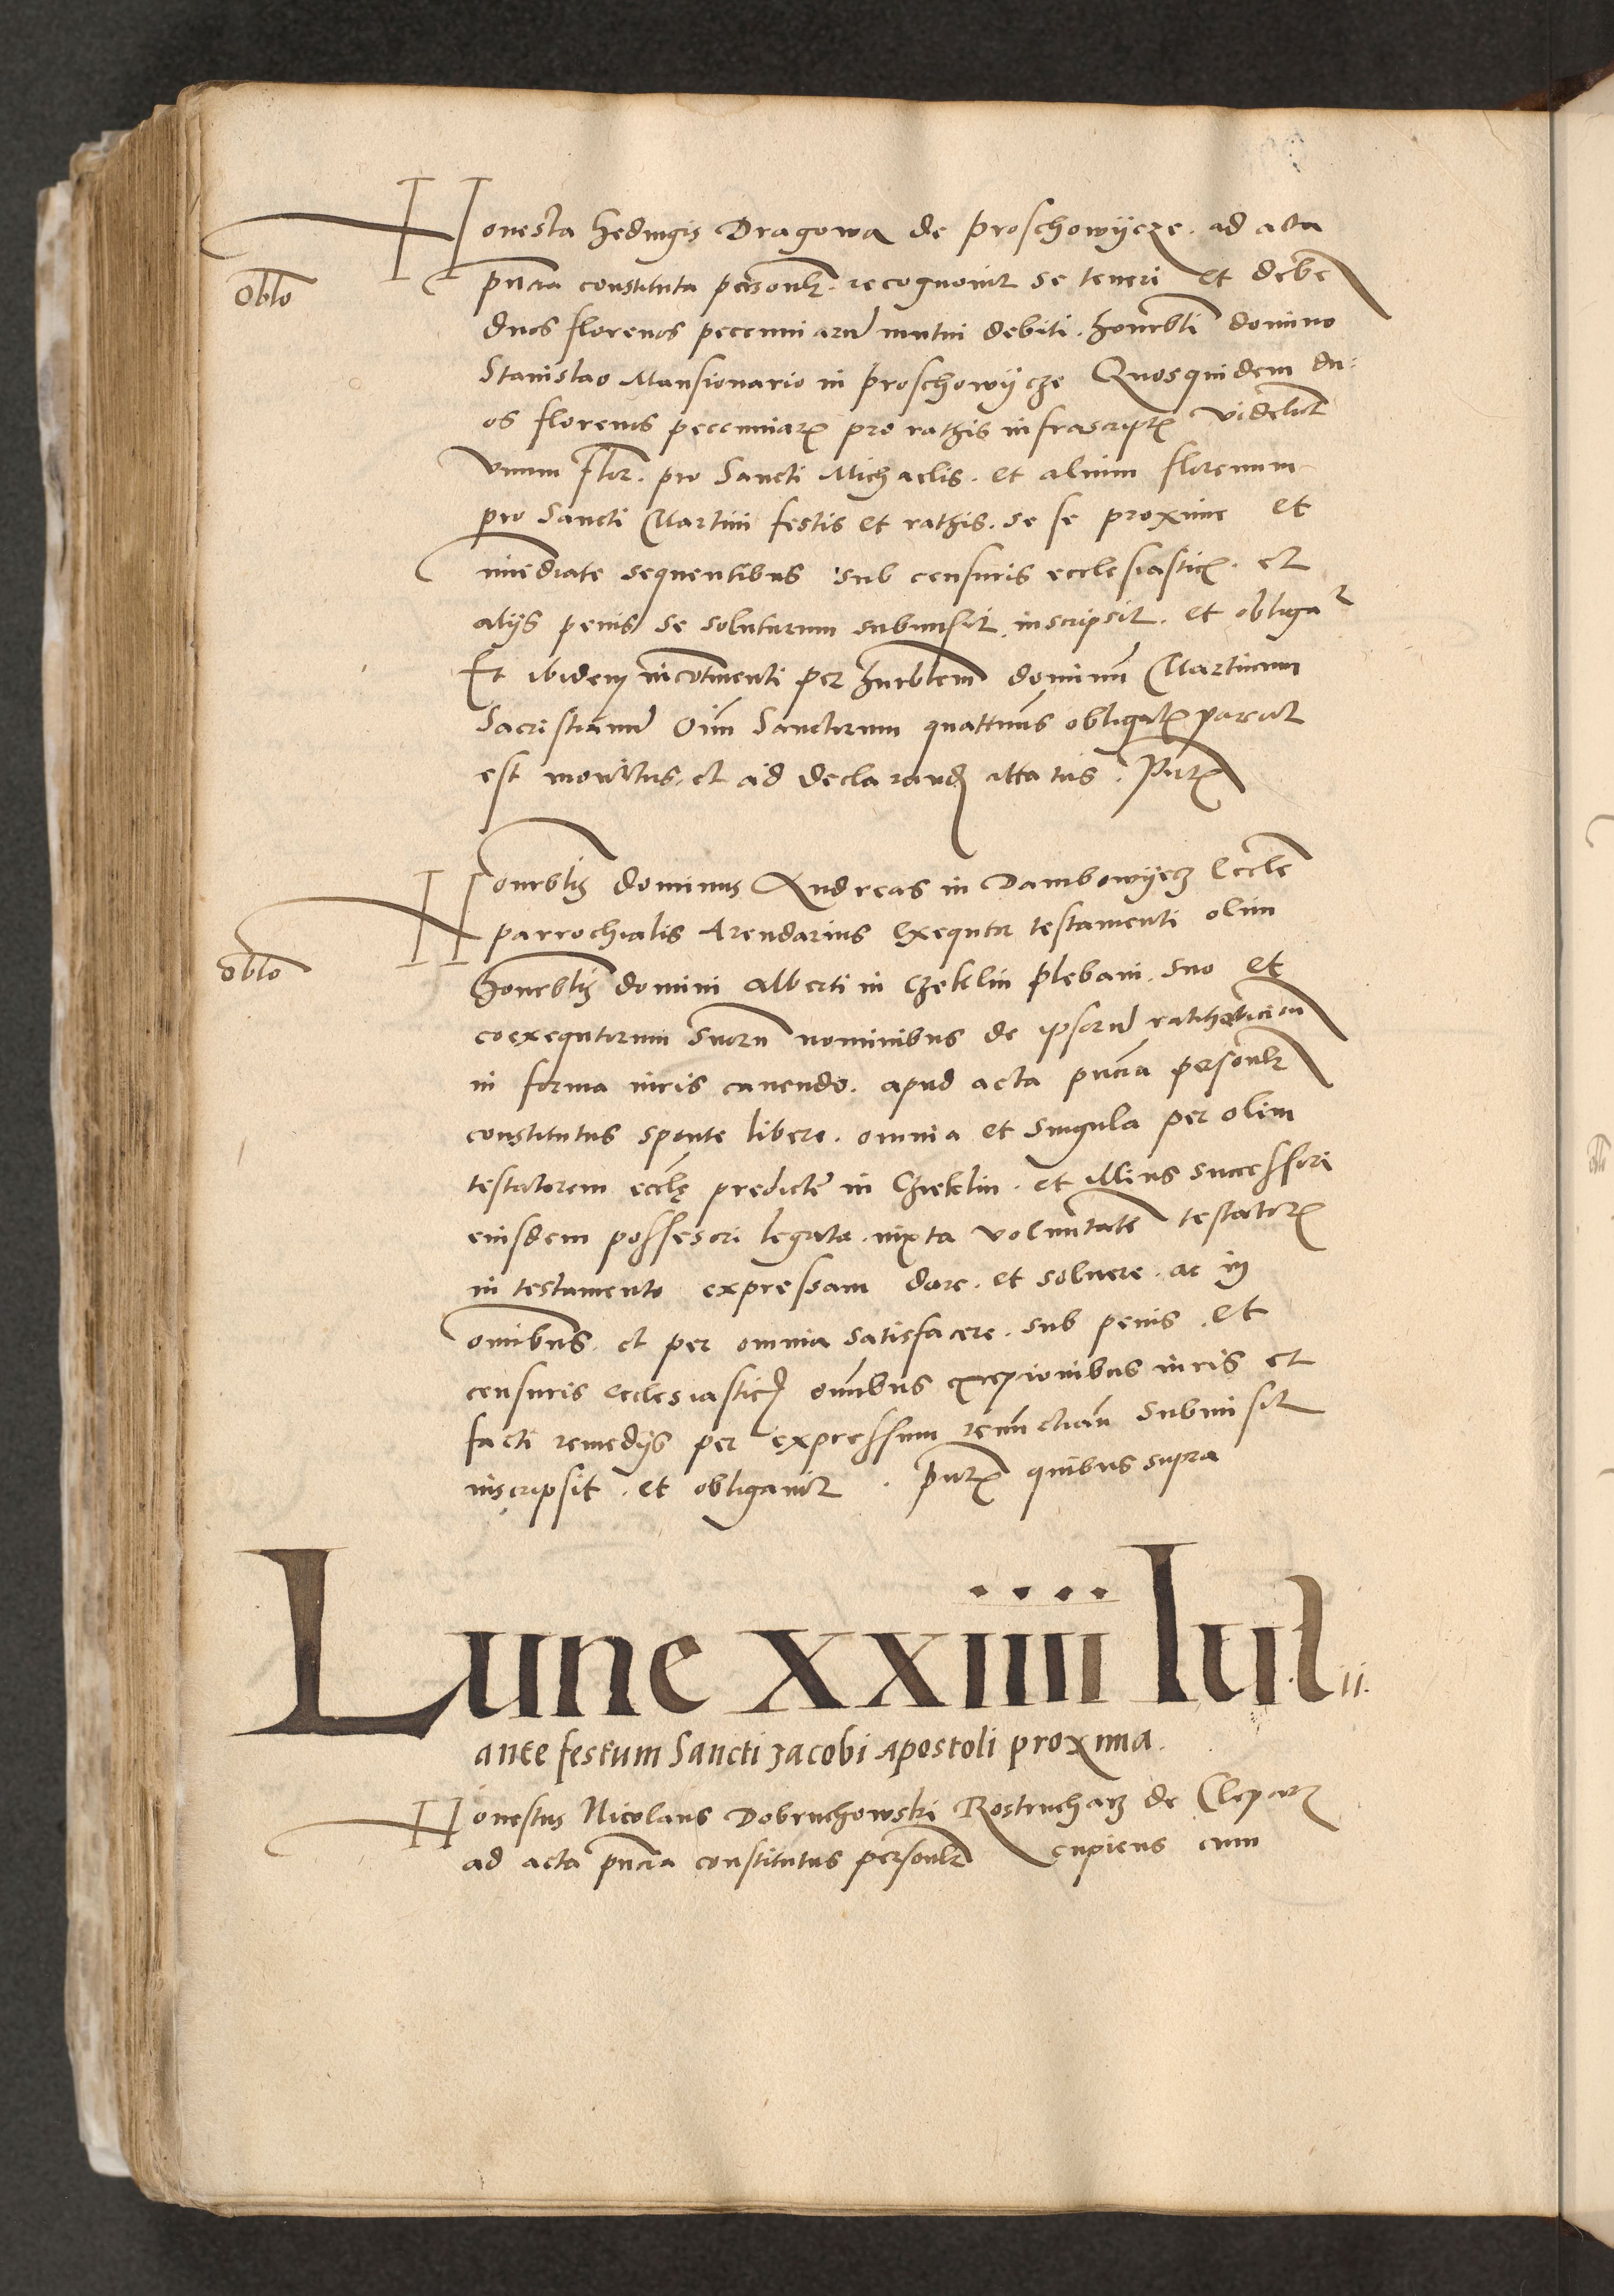 Honesta Hedvigis Dragowa de Proschowijcze. ad acta
oblo
pntia constituta personlr. recognovit se teneri et debe
duos florenos pecuniarum mutui debiti. honorbli domino
Stanislao Mansionario in proschowijcze Quosquidem du-
os florenos pecuniarum pro rathis infrascriptis videlict
vnum flor. pro Sancti Michaelis. et alium florenum
pro Sancti Martini festis et rathis. se se proxime et
imediate sequentibus sub censuris ecclesiasticis. et
alijs penis se soluturum submisit. inscripsit. et obliga
Et ibidem incontinenti per hnrblem dominum Martinum
Sacristianum Oim Sanctorum quattenus obligatis pareat
est monitus et ad declarand citatus. Pntibus
Honorblis dominus Andreas in Dambowyecz Eccle
parrochialis Arendarius Exequtor testamenti olim
oblo
honorblis domini Alberti in Czeklin plebani. suo et
coexequtorum suorum nominibus de ipsorum ratihaticion
in forma iuris cavendo. apud acta pntia personlr
constitutus sponte libere. omnia et singula per olim
testatorem eccle predicte in Czieklin. et illius successori
eiusdem possessori legata. iuxta voluntate testatoris
in testamento expressam dare. et soluere. ac in
omibus. et per omnia satisfacere. sub penis. et
censuris ecclesiasticis omibus excepcionibus iuris et
facti remedijs per expressum renunctiam submisit
inscripsit. et obligavit. pntibus quibus supra
Lune XXIIII Iulii.
ante festum Sancti Jacobi Apostoli proxima.
Honestus Nicolaus Dobruchowski Rostrucharz de Cleparz
ad acta pntia constitutus personlr cupiens cum